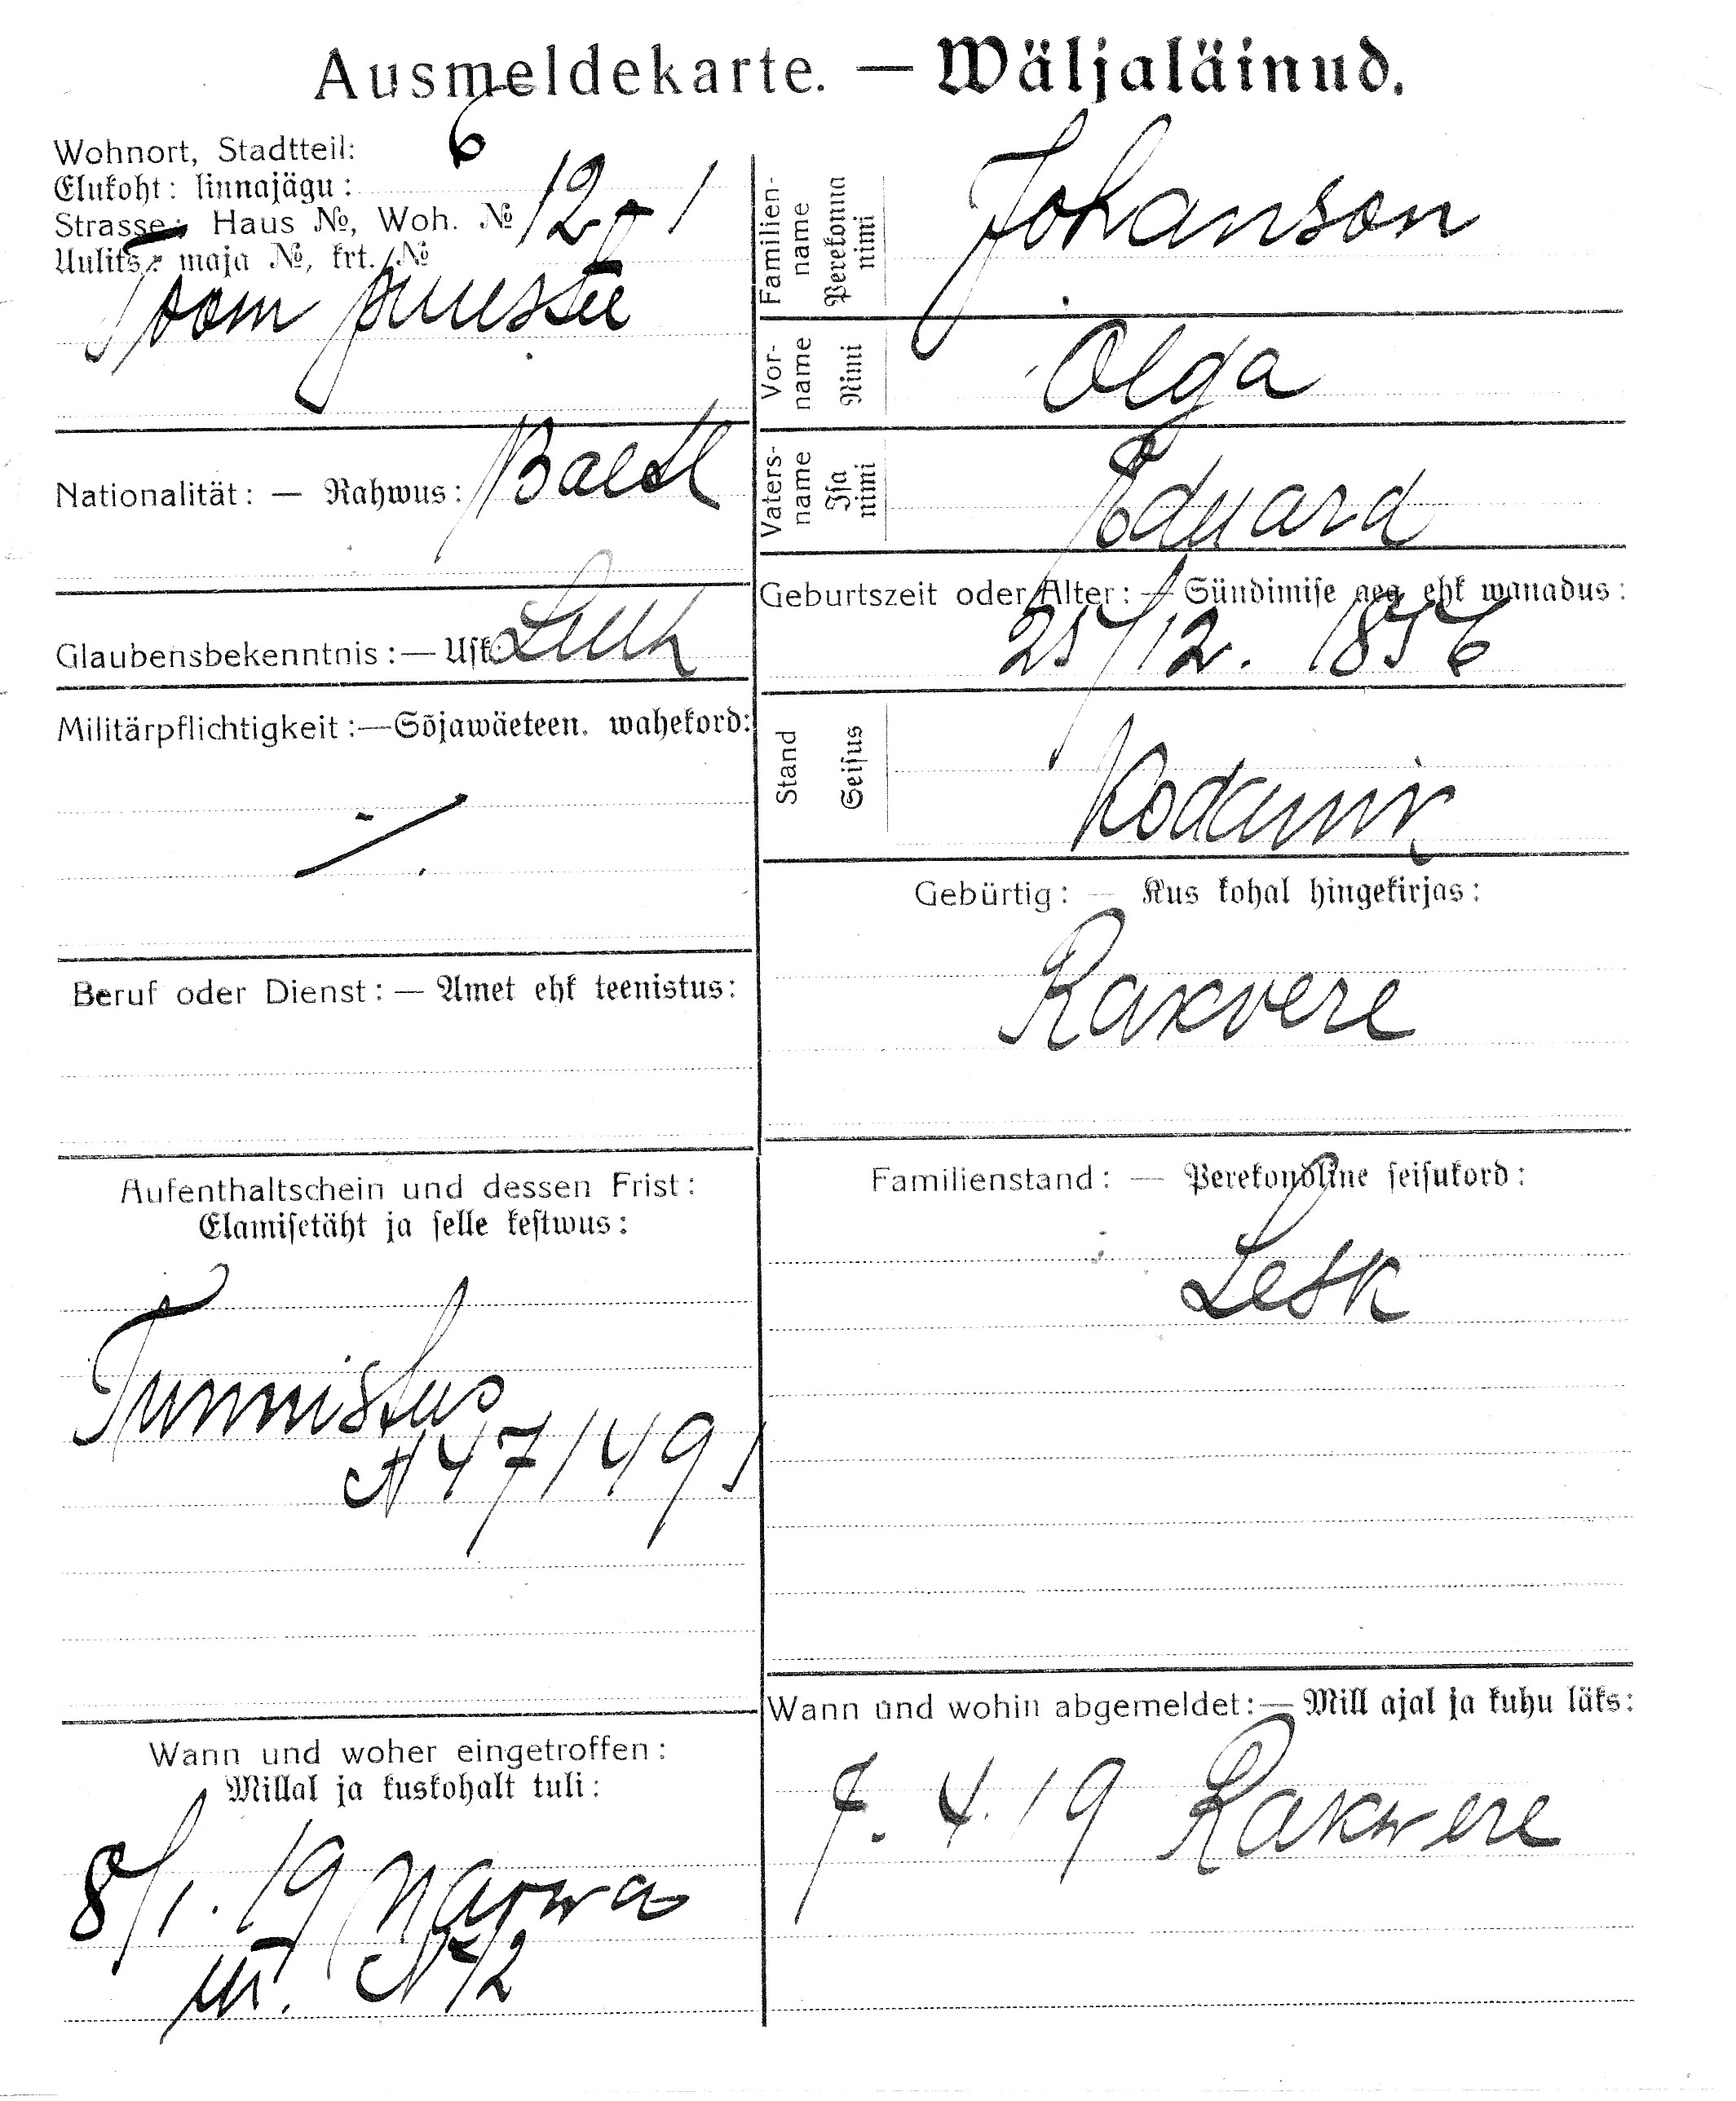 Ausmeldekarte. — Wäljaläinud.
Wohnort, Stadtteil: 6
Elukoht: linnajägu:
Strasse: Haus №, Woh. № 12 - 1
Uulits: maja №, krt. №
Toom puiestee
Nationalität: — Rahwus: Baltl
Glaubensbekenntnis:— Usk: Luth
Militärpflichtigkeit:—Sõjawäeteen. wahekord:
Beruf oder Dienst: — Amet ehk teenistus:
Aufenthaltschein und dessen Frist:
Elamisetäht ja selle kestwus:
Tunnistus
№ 47/491
Wann und woher eingetroffen:
Millal ja kuskohalt tuli:
8/1. 19 Narwa
m. № 72
Familien-name Perekonna nimi Johanson
Vor-name Nimi Olga
Vaters-name Isa nimi Eduard
Geburtszeit oder Alter: — Sündimise aeg ehk wanadus:
25/12. 1856
Stand Seisus Kodanik
Gebürtig: — Kus kohal hingekirjas:
Rakvere
Familienstand: — Perekondline seisukord:
Lesk
Wann und wohin abgemeldet:— Mill ajal ja kuhu läks:
7. 4. 19 Rakwere